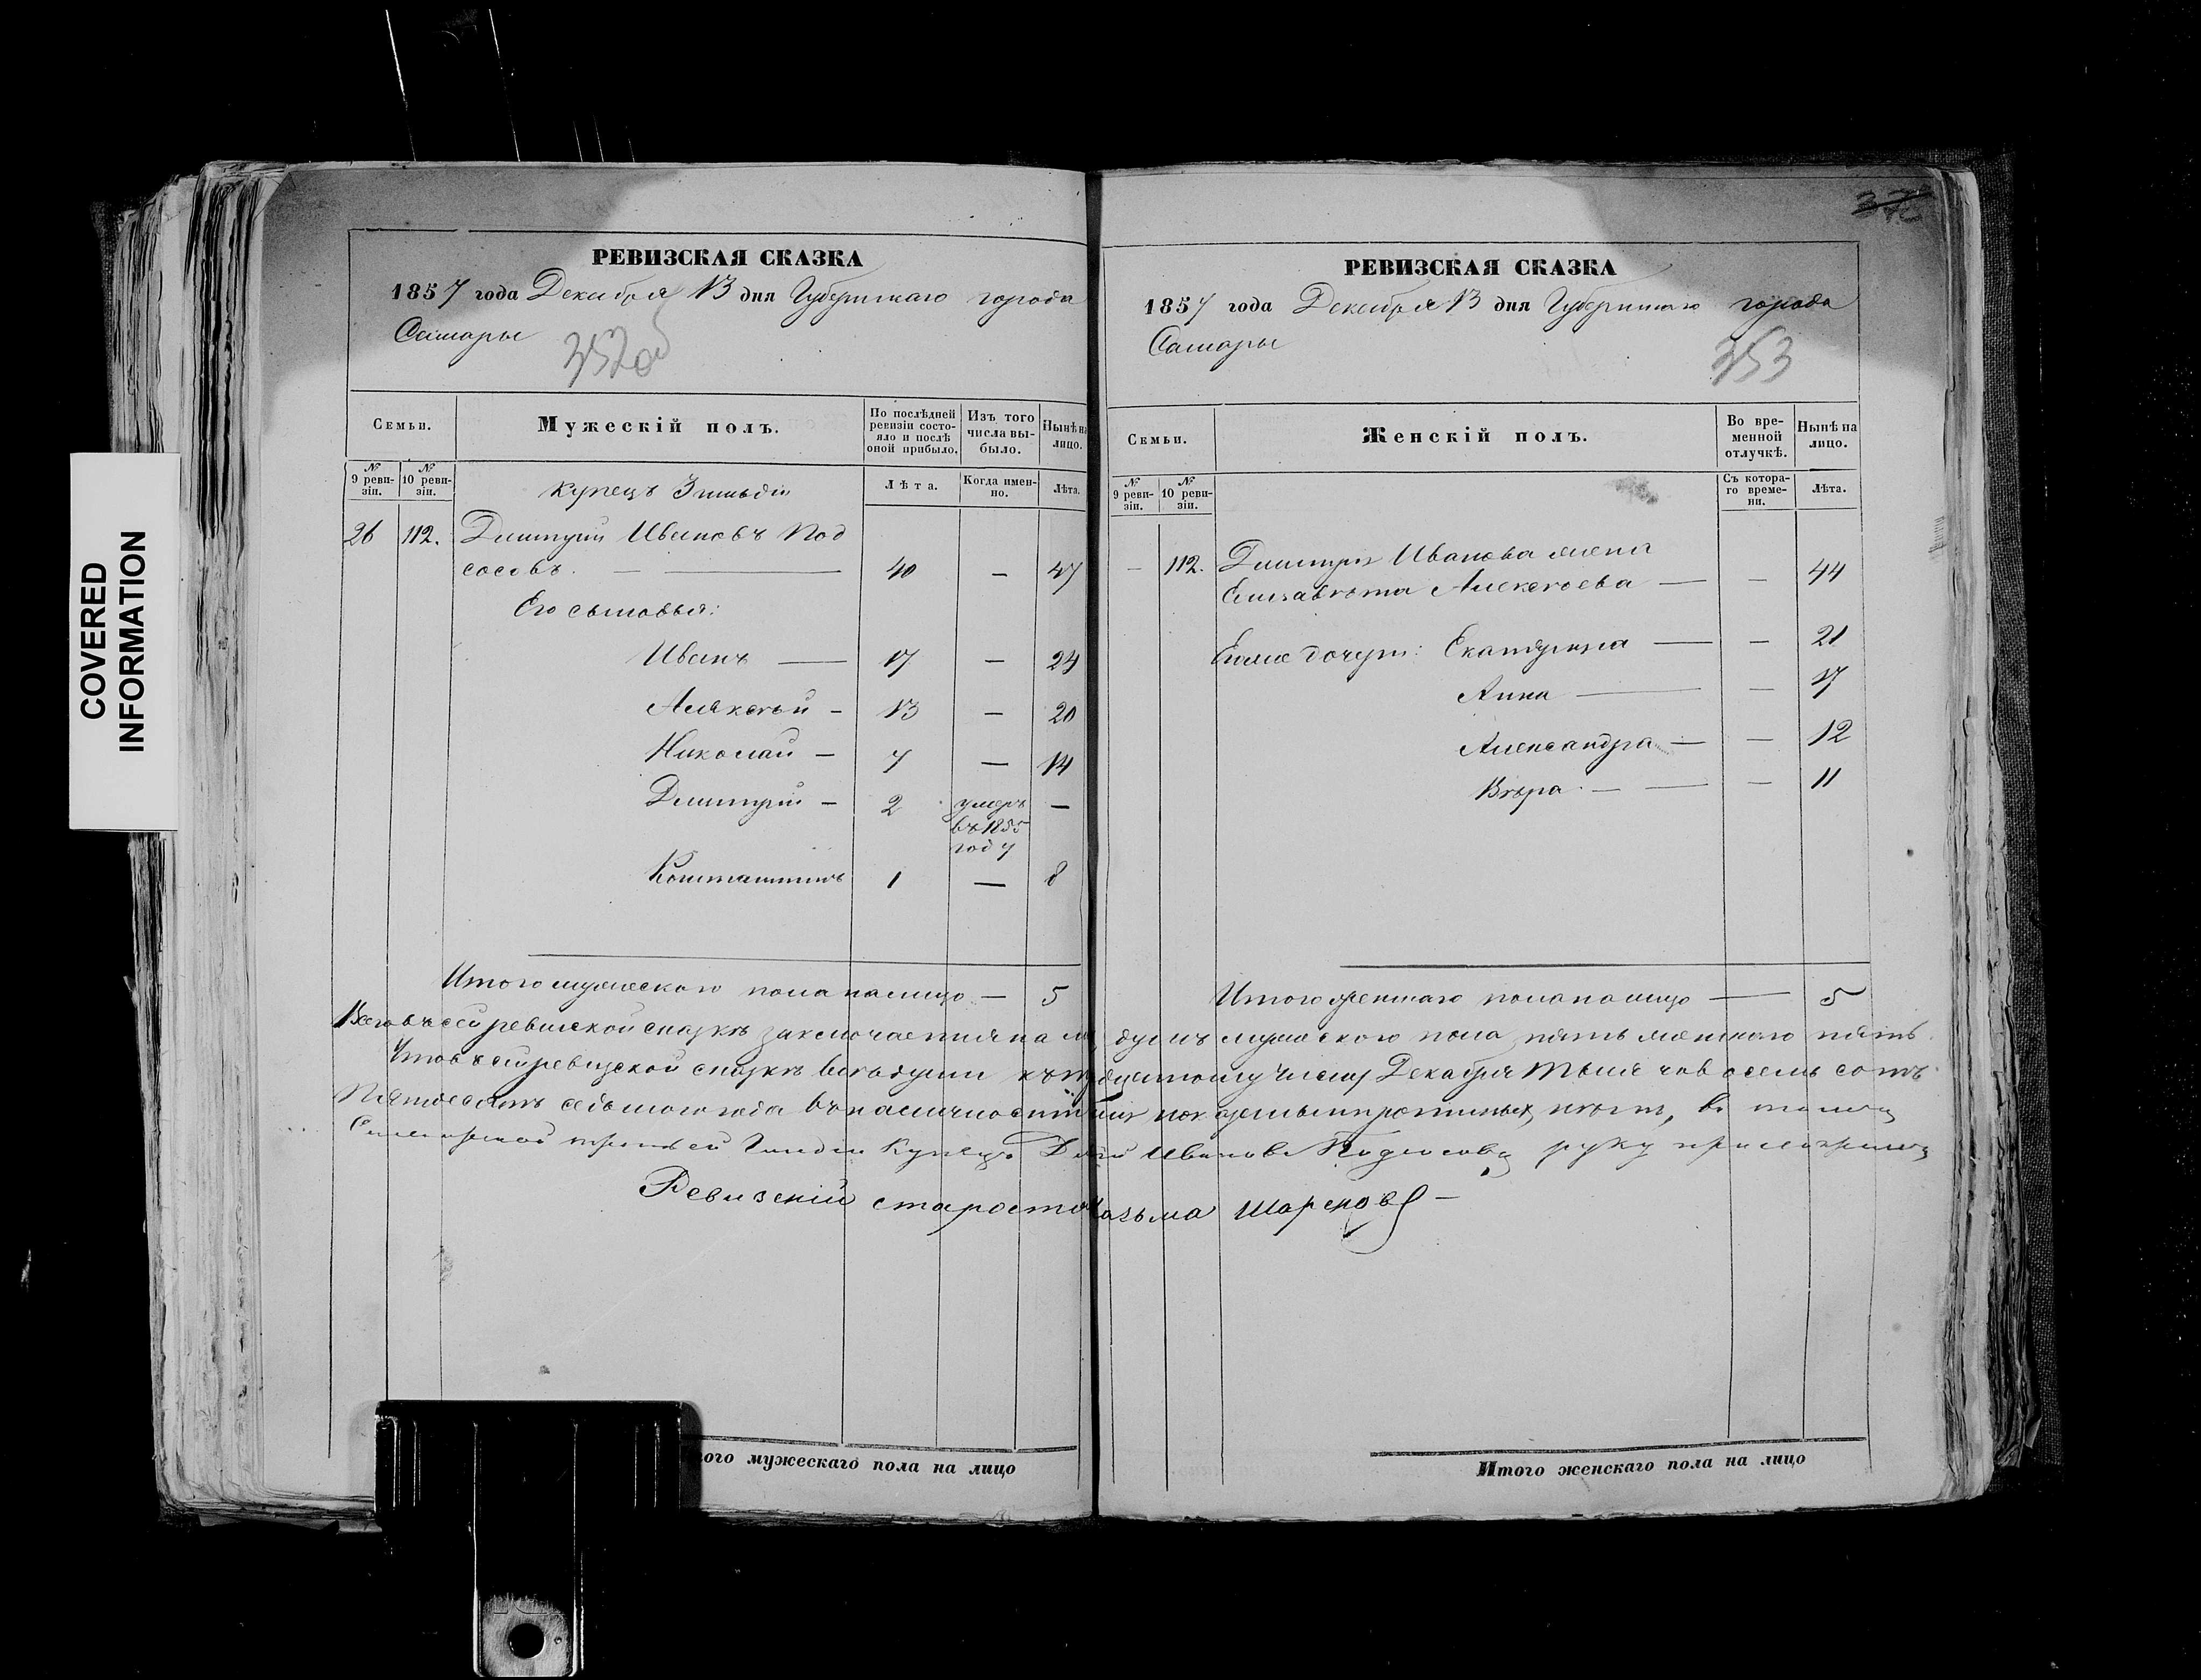 COVERED
INFORMATION
РЕВИЗСКАЯ СКАЗКА
1857 года Декабря 13 дня Губернскаго города
Самары
352об
Семьи.
Мужескій полъ.
По послѣдней ревизіи состояло и послѣ оной прибыло.
Изъ того числа выбыло.
Нынѣ на лицо.
№ 9 ревизіи.
№ 10 ревизіи.
Лѣта.
Когда именно.
Лѣта.
купецъ 3 гильдіи
26 112. Дмитрій Ивановъ Под
сосовъ. — 40 — 47
Его сыновья:
Иванъ — 17 — 24
Алексѣй — 13 — 20
Николай — 7 — 14
Дмитрій — 2 умеръ —
въ 1855
году
Константинъ 1 — 8
Итого мужескаго пола налицо — 5
РЕВИЗСКАЯ СКАЗКА
1857 года Декабря 13 дня Губернскаго города
Самары
353
Семьи.
Женскій полъ.
Во временной отлучкѣ.
Нынѣ на лицо.
№ 9 ревизіи.
№ 10 ревизіи.
Съ котораго времени.
Лѣта.
— 112. Дмитрія Иванова жена
Елизавета Алексѣева — — 44
дочери: Екатерина — — 21
Анна — — 17
Александра — — 12
Вѣра — — 11
Итого женскаго пола на лицо — 5
Всего въ сей ревизской сказкѣ заключается на ли душъ мужескаго пола пять женскаго пять.
Что въ сей ревизской сказкѣ всѣ души къ числу Декабря тысяча восемь сотъ
Пятьдесятъ седьмого года въ наличности показаны и пропущенныхъ нѣтъ, въ томъ
Самарской третьей Гильдіи Купецъ Ивановъ Подсосовъ руку приложилъ
Ревизскій староста Козьма Шарсповъ —
ого мужескаго пола на лицо
Итого женскаго пола на лицо